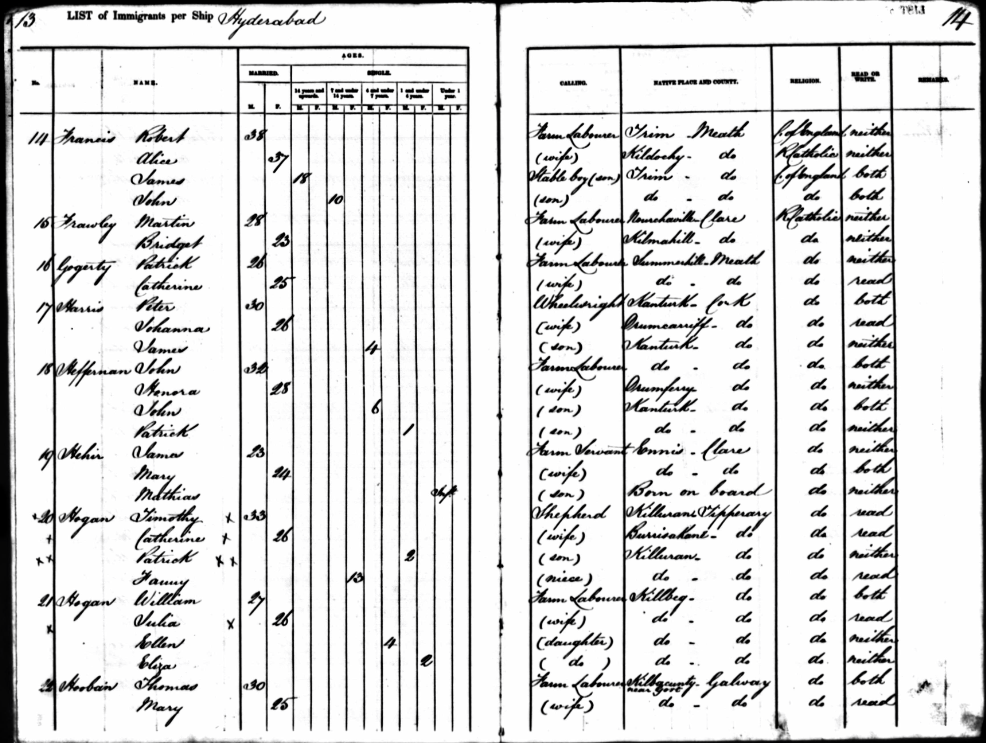 13 LIST of Immigrants per Ship Hyderabad LIST 14
AGES.
MARRIED. SINGLE.
No. NAME. 14 years and upwards. 7 and under 14 years. 1 and under Under 1 year. CALLING. NATIVE PLACE AND COUNTY. RELIGION. READ OR WRITE. REMARKS.
M. F. M. F. M. F. M. F. M. F. M. F.
14 Francis Robert 38 Farm Labourer Trim - Meath C. of England neither
Alice 37 (wife) Kildochy - do RCatholic neither
James 18 Stable boy (son) Trim - do C. of England both
John 10 (son) do - do do both
15 Frawley Martin 28 Farm Labourer Clare RCatholic neither
Bridget 23 (wife) Kilmahill - do do neither
16 Gogerty Patrick 26 Farm Labourer Summerhill - Meath do neither
Catherine 25 (wife) do - do do read
17 Harris Peter 30 Wheelwright Kanturk - Cork do both
Johanna 26 (wife) Drumcarriff - do do read
James 4 (son) Kanturk - do do neither
18 Heffernan John 32 Farm Labourer do - do do both
Honora 28 (wife) Drumferry do do neither
John 6 (son) Kanturk - do do both
Patrick 1 (son) do - do do neither
19 Hehir Jama 23 Farm Servant Ennis - Clare do neither
Mary 24 (wife) do - do do both
Mathias Inft (son) Born on board do neither
x 20 Hogan Timothy x 33 Shepherd Killuran Tipperary do read
x Catherine x 26 (wife) Burrisakane - do do read
x x Patrick x x 2 (son) Killuran - do do neither
Fanny 13 (niece) do - do do read
21 Hogan William 27 Farm Labourer Killbeg - do do both
x Julia x 26 (wife) do - do do read
Ellen 4 (daughter) do - do do neither
Eliza 2 ( do ) do - do do neither
22 Hooban Thomas 30 Farm Labourer Kilbacunty - Galway do both
near Gort
Mary 25 (wife) do - do do read